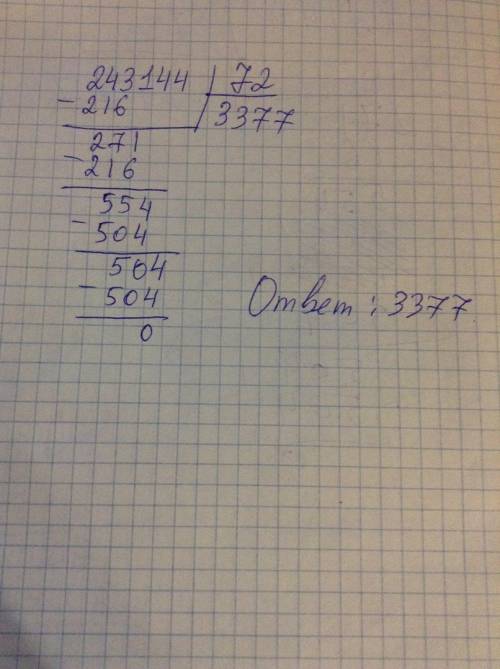 243144 | 72
- 216 3377
271
- 216
554
- 504
504
- 504
0
Ответ: 3377